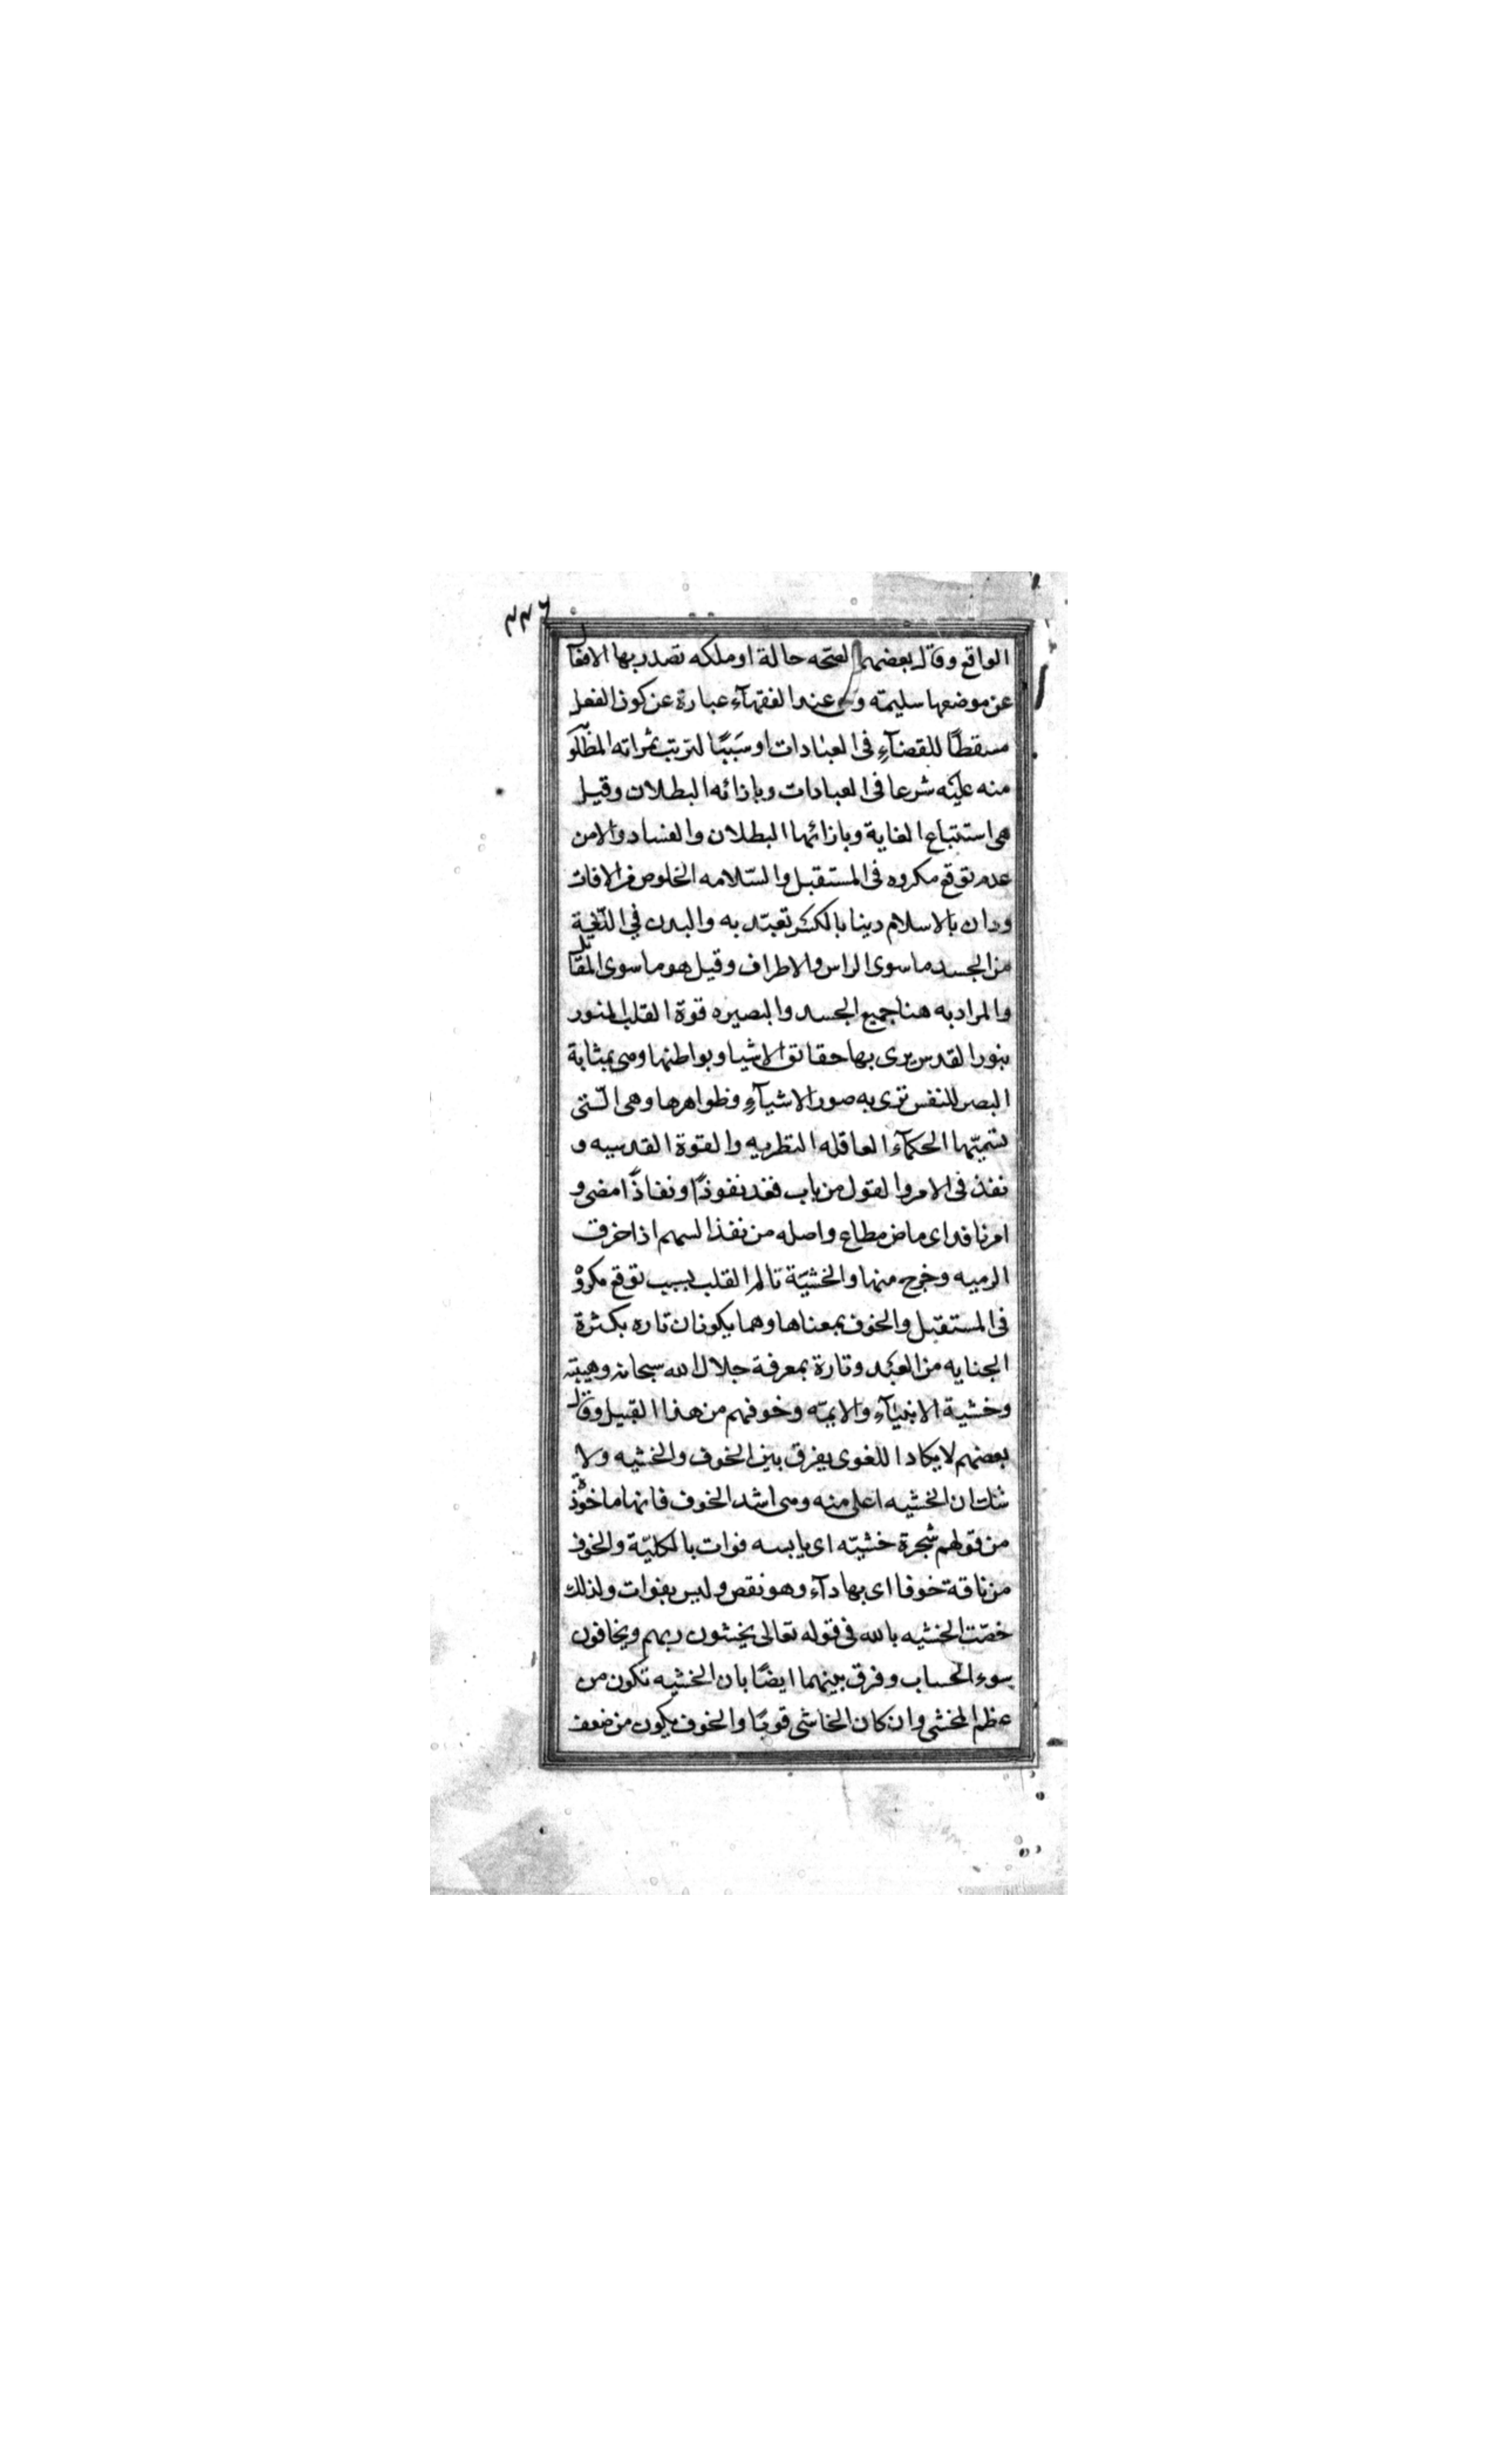 ٢٢٦
الواقع وقال بعضهم الصحه حالة او ملكه تصدر بها الافعال
عن موضعها سليمته وهى عند الفقهآء عبارة عن كون الفعل
مسقطًا للقضآءِ فى العبادات او سَببًا لترتب ثمراته المطلوب
منه عليْه شرعا فى العبادات وبازائه البطلان وقيل
هى استتباع الغاية وبازائها البطلان والفساد والامن
عدم توقع مكروه فى المستقبل والسّلامه الخلوص من الافات
ودان بالاسلام دينا بالكسر تعبّد به والبدن فى اللّغية
من الجسد ما سوى الراس والاطراف وقيل هو ما سوى المقاتل
والمراد به هنا جميع الجسد والبصيره قوة القلب المنور
بنور القدس يرى بها حقائق الاشيا وبواطنها وهى بمثابة
البصر للنفس ترى به صور الاشيآءِ وظواهرها وهى الّتى
تسَميّها الحكمآء العاقله النظريه والقوة القدسيه و
نفذ فى الامر والقول من باب قعد نفوذًا ونفاذًا امضى و
امر نافد اى ماض مطاع واصله من نفذ السهم اذا خرق
الرميه وخرج منها والخشيّة تالم القلب بسبب توقع مكروه
فى المستقبل والخوف بمعناها وهما يكونان تاره بكثرة
الجنايه من العبْد وتارة بمعرفة جلال الله سبحانه وهيبته
وخشية الانبيآءِ والايمّه وخوفهم من هذا القبيل وقال
بعضهم لا يكاد اللغوى يفرق بين الخوف والخشيه ولا
شك ان الخشيه اعلى منه وهى اشد الخوف فانها ماخوذة
من قولهم شجرة خشيّه اى يابسه فوات بالكليّة والخوف
من ناقة خوفا اى بها دآء وهو نقص وليس بفوات ولذلك
خصّت الخشيه بالله فى قوله تعالى يخشون ربهم ويخافون
سوء الحساب وفرق بينهما ايضًا بان الخشيه تكون من
عظم المخشى وان كان الخاشى قويًا والخوف يكون من ضعف